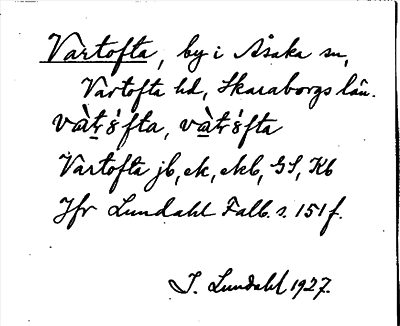 Vartofta, by i Åsaka sn,
Vartofta hd, Skaraborgs län.
Vartofta jb, ek, ekb, GS, Kb
Jfr Lundahl Falb. s. 151 f.
I. Lundahl 1927.